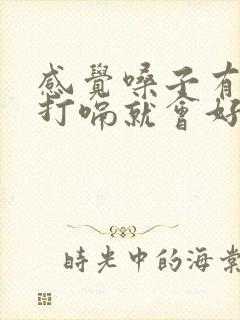 感覺嗓子有
打喘就會好
時光中的海棠